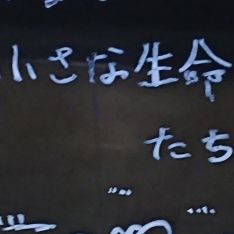 小さな生命
たち